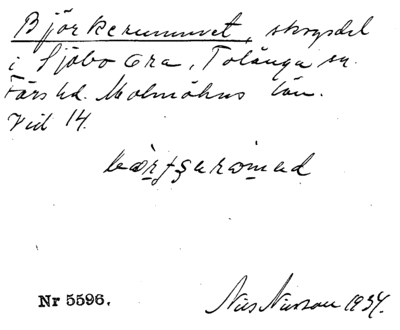 Björkerummet, skogsdel
i Sjöbo Ora, Tolånga sn.
Färs hd. Malmöhus län.
Vid 14.
Nr 5596.
Nils Nilsson 1934.